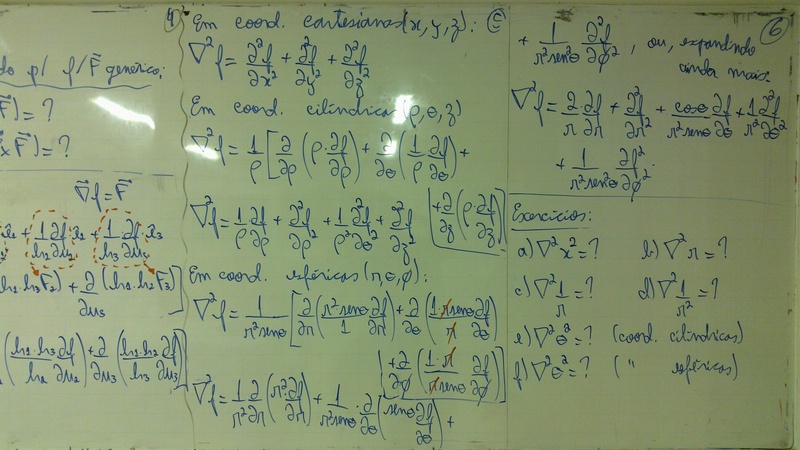 do p/ f/F⃗ genérico;
F⃗) = ?
x F⃗) = ?
∇⃗f = F⃗
x̂₁ + (1/h₂ ∂f/∂u₂) x̂₂ + (1/h₃ ∂f/∂u₃) x̂₃
h₁.h₃F⃗₂) + ∂/∂u₃ (h₁.h₂F⃗₃)]
(h₁.h₃/h₂ ∂f/∂u₂) + ∂/∂u₃ (h₁.h₂/h₃ ∂f/∂u₃)]
4)
Em coord. cartesianas (x, y, z): 5
∇²f = ∂²f/∂x² + ∂²f/∂y² + ∂²f/∂z²
Em coord. cilíndricas (ρ, θ, z)
∇²f = 1/ρ [∂/∂ρ (ρ.∂f/∂ρ) + ∂/∂θ (1/ρ ∂f/∂θ) +
+ ∂/∂z (ρ.∂f/∂z)]
∇²f = 1/ρ ∂f/∂ρ + ∂²f/∂ρ² + 1/ρ² ∂²f/∂θ² + ∂²f/∂z²
Em coord. esféricas (r, θ, φ):
∇²f = 1/r²senθ [∂/∂r (r²senθ/1 ∂f/∂r) + ∂/∂θ (1.r senθ/r ∂f/∂θ)
+ ∂/∂φ (1.r/r senθ ∂f/∂φ)]
∇²f = 1/r² ∂/∂r (r².∂f/∂r) + 1/r²senθ . ∂/∂θ (senθ ∂f/∂θ) +
6
+ 1/r²sen²θ ∂²f/∂φ² , ou, expandindo
ainda mais:
∇²f = 2/r . ∂f/∂r + ∂²f/∂r² + cosθ/r²senθ ∂f/∂θ + 1/r² ∂²f/∂θ²
+ 1/r²sen²θ ∂f²/∂φ² .
Exercícios:
a) ∇²x² = ? b) ∇²r = ?
c) ∇² 1/r = ? d) ∇² 1/r² = ?
e) ∇²θ² = ? (coord. cilíndricas)
f) ∇²θ² = ? ( " esféricas)